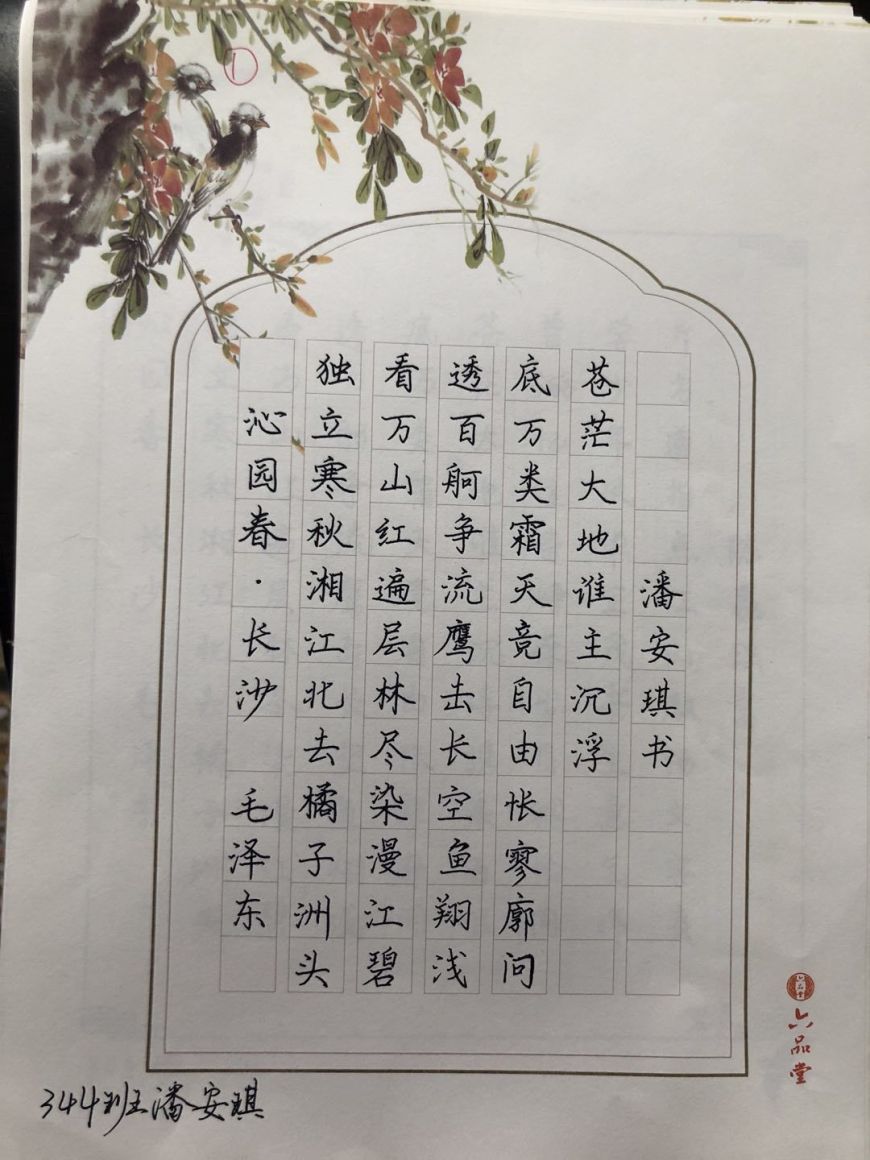 ①
沁园春·长沙 毛泽东
独立寒秋湘江北去橘子洲头
看万山红遍层林尽染漫江碧
透百舸争流鹰击长空鱼翔浅
底万类霜天竞自由怅寥廓问
苍茫大地谁主沉浮
潘安琪书
六品堂
六品堂
344班潘安琪